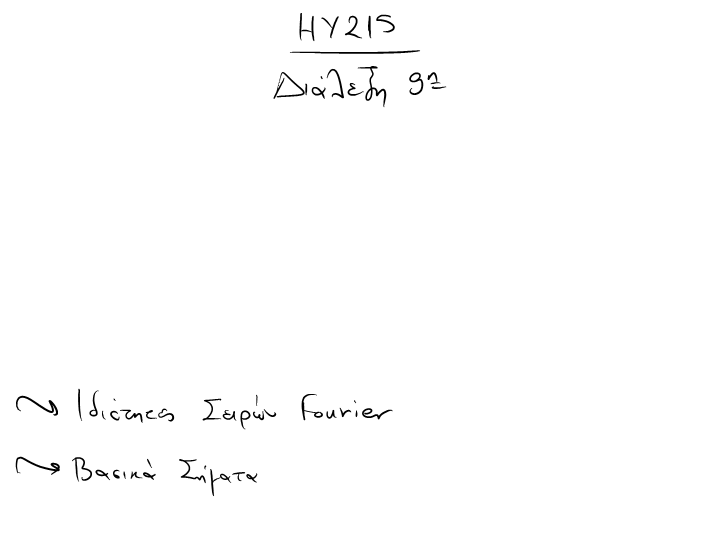 HY215
Διάλεξη 9η
Ιδιότητες Σειρών Fourier
Βασικά Σήματα